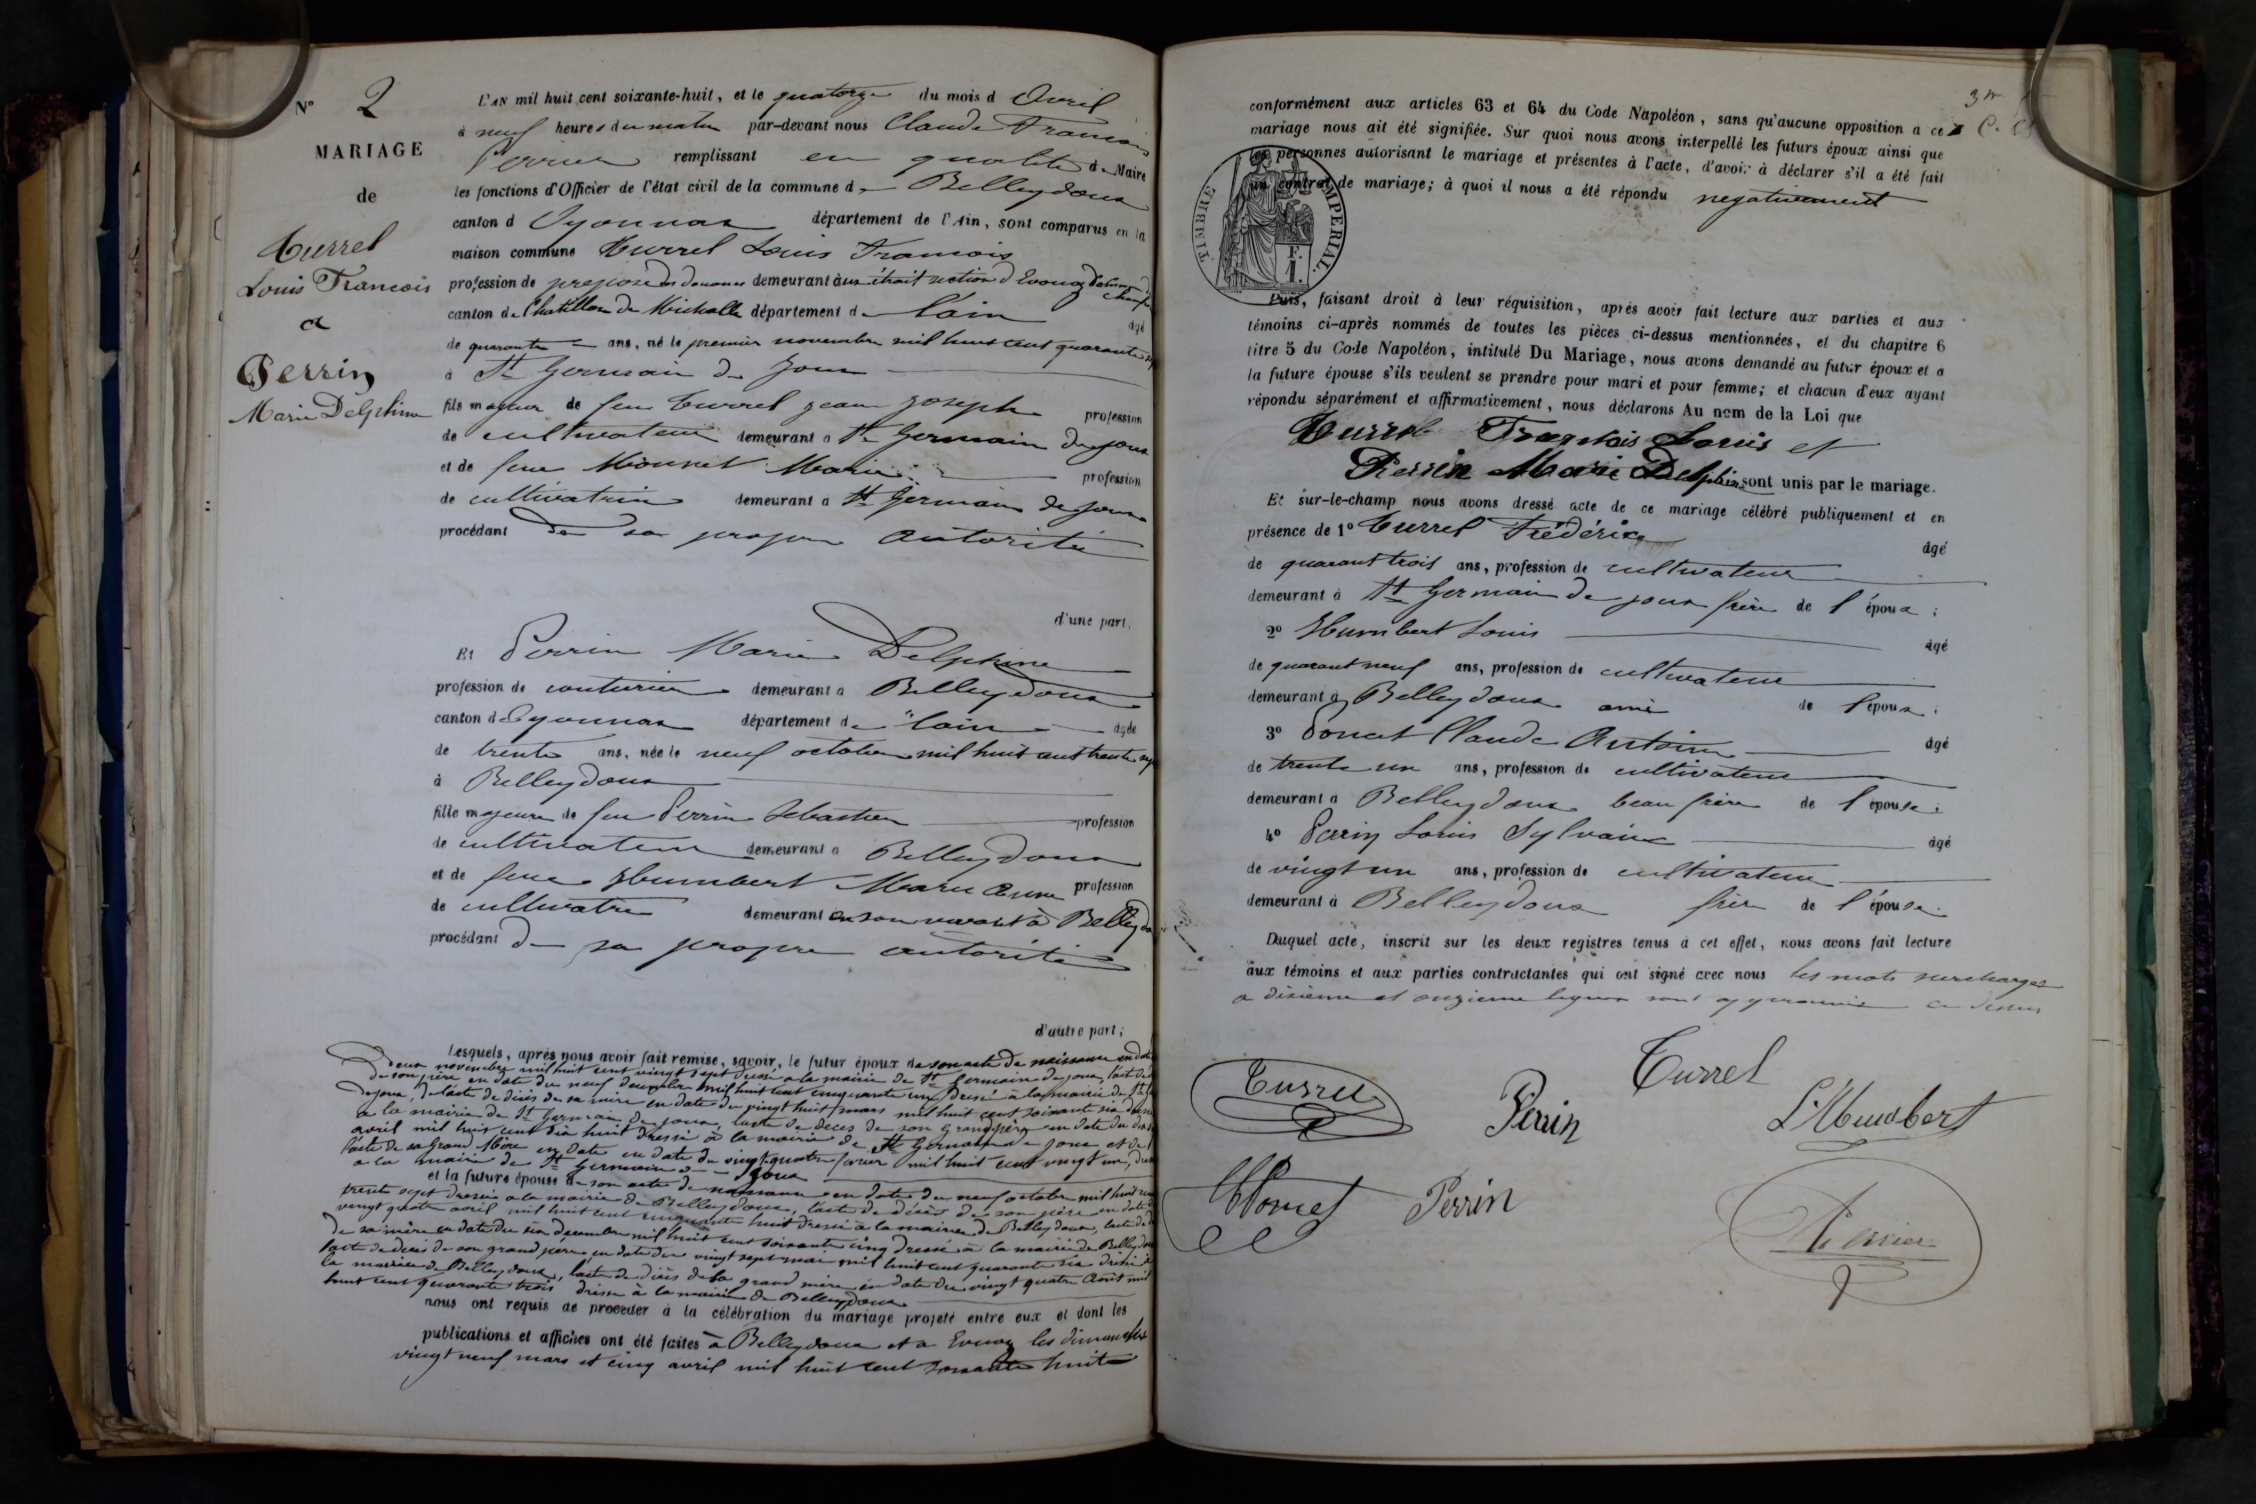 N° 2
MARIAGE
de
Turrel
Louis François
a
Perrin
Marie Delphine
L'AN mil huit cent soixante-huit, et le quatorze du mois d Avril
à neuf heures du matin par-devant nous Claude François
Perrier remplissant en qualité de Maire
les fonctions d'Officier de l'état civil de la commune de Belleydoux
canton d Oyonnax département de l'Ain, sont comparus en la
maison commune Turrel Louis François
profession de preposé des douanes demeurant à section d'Evouaz
canton de Chatillon de Michaille département de l'ain âgé
de quarante ans, né le premier novembre mil huit cent
à St Germain de Joux
fils majeur de feu Turrel jean joseph profession
de cultivateur demeurant a St Germain de joux
et de feue Mounet Marie profession
de cultivatrice demeurant a St Germain de Joux
procédant de sa propre autorité
d'une part,
Et Perrin Marie Delphine
profession de couturière demeurant a Belleydoux
canton d'Oyonnax département de l'ain âgée
de trente ans, née le neuf octobre mil huit cent trente sept
à Belleydoux
fille majeure de feu Perrin Sebastien profession
de cultivateur demeurant a Belleydoux
et de feue Humbert Marie profession
de cultivatrice demeurant en son vivant à Belleydoux
procédant de sa propre autorité
d'autre part;
Lesquels, après nous avoir fait remise, savoir, le futur époux de son acte de naissance en date
deux novembre mil huit cent vingt sept dressé a la mairie de St Germain de joux, l'acte de
de son père en date du neuf mil huit cent cinquante un dressé a la mairie de St
de joux, de l'acte de décès de sa mère en date du vingt huit mars mil huit cent soixante six
a la mairie de St Germain de joux, l'acte de deces de son grand père en date du
avril mil huit cent dix huit dressé à la mairie de St Germain de joux et de
l'acte de sa Grand Mère en date du vingt quatre mil huit cent vingt un,
a la mairie de St Germain de Joux
et la future épouse de son acte de naissance en date du neuf octobre mil huit cent
trente sept dressé a la mairie de Belleydoux, l'acte de décès de son père en date
vingt quatre avril mil huit cent cinquante huit dressé a la mairie de Belleydoux, l'acte de
de sa mère en date du six décembre mil huit cent soixante cinq dressé a la mairie de Belleydoux
l'acte de deces de son grand père en date du vingt sept mai mil huit cent quarante six dressé
la mairie de Belleydoux, l'acte de décès de sa grand mère en date du vingt quatre Août mil
huit cent quarante trois dressé à la mairie de Belleydoux
nous ont requis de procéder à la célébration du mariage projeté entre eux et dont les
publications et affiches ont été faites à Belleydoux et a Evouaz les dimanches
vingt neuf mars et cinq avril mil huit cent soixante huit
3
conformément aux articles 63 et 64 du Code Napoléon, sans qu'aucune opposition à ce
mariage nous ait été signifiée. Sur quoi nous avons interpellé les futurs époux ainsi que
les personnes autorisant le mariage et présentes à l'acte, d'avoir à déclarer s'il a été fait
un contrat de mariage; à quoi il nous a été répondu negativement
TIMBRE IMPERIAL.
F.
1.
Puis, faisant droit à leur réquisition, après avoir fait lecture aux parties et aux
témoins ci-après nommés de toutes les pièces ci-dessus mentionnées, et du chapitre 6
titre 5 du Code Napoléon, intitulé Du Mariage, nous avons demandé au futur époux et à
la future épouse s'ils veulent se prendre pour mari et pour femme; et chacun d'eux ayant
répondu séparément et affirmativement, nous déclarons Au nom de la Loi que
Turrel François Louis et
Perrin Marie Delphine sont unis par le mariage.
Et sur-le-champ nous avons dressé acte de ce mariage célébré publiquement et en
présence de 1° Turrel Frédéric âgé
de quarant trois ans, profession de cultivateur
demeurant à St Germain de joux frère de l'époux;
2° Humbert Louis âgé
de quarant neuf ans, profession de cultivateur
demeurant à Belleydoux ami de l'époux;
3° Poncet Claude Antoine âgé
de trente un ans, profession de cultivateur
demeurant a Belleydoux beau frère de l'épouse;
4° Perrin Louis Sylvain âgé
de vingt un ans, profession de cultivateur
demeurant à Belleydoux frère de l'épouse.
Duquel acte, inscrit sur les deux registres tenus à cet effet, nous avons fait lecture
aux témoins et aux parties contractantes qui ont signé avec nous les mots surchargés
a dixieme et onzieme lignes sont approuvés ci dessus
Turrel
Turrel
Perrin
L. Humbert
Poncet
Perrin
Perrier